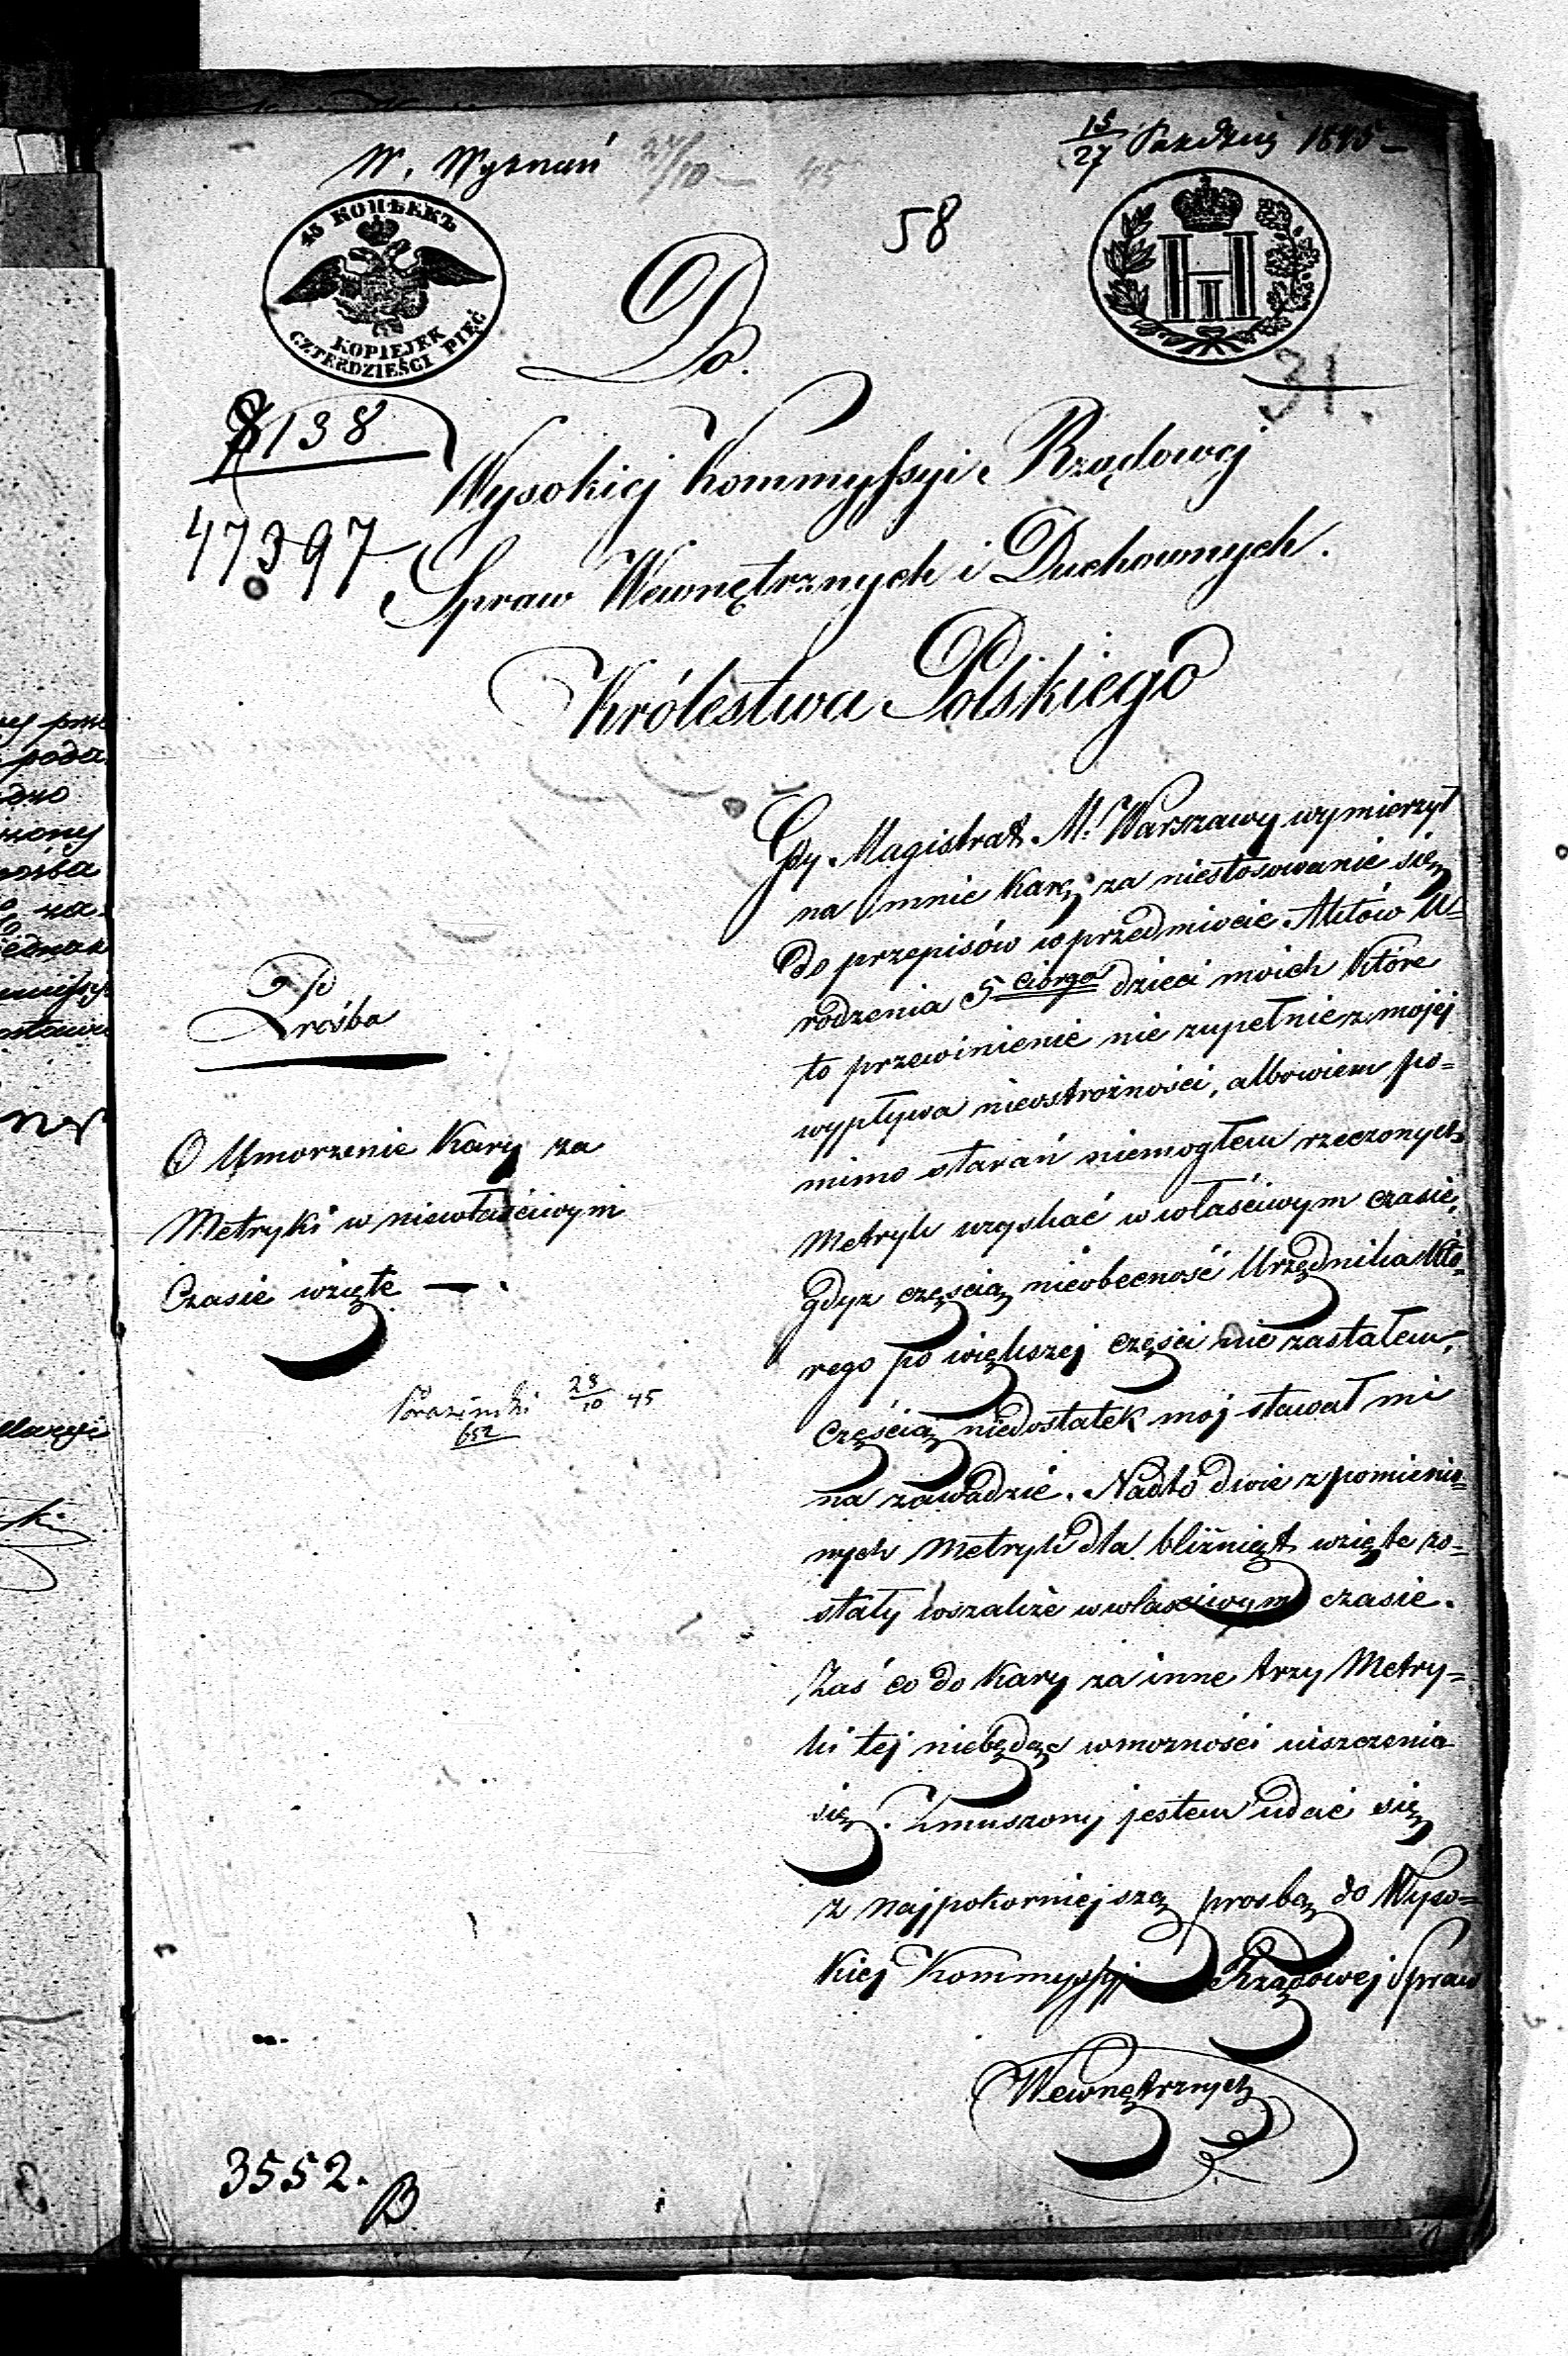 W. Wyznań 27/10 45
15/27 Paźdźier 1845
58
45 КОПѢЕКЪ
KOPIEJEK
CZTERDZIEŚCI PIĘĆ
Do
31.
8138
47397
Wysokiej Kommyssyi Rządowej
Spraw Wewnętrznych i Duchownych.
Królestwa Polskiego
Prośba
O Umorzenie Kary za
Metryki w niewłaściwym
Czasie wzięte — .
28/10 45
652
Gdy Magistrat M. Warszawy wymierzył
na mnie Karę za niestosowanie się
do przepisów w przedmiocie Aktów U=
rodzenia 5ciorga dzieci moich Które
to przewinienie nie zupełnie z mojej
wypływa nieostrożności, albowiem po=
mimo starań niemogłem rzeczonych
Metryk uzyskać w właściwym czasie,
gdyz częscią nieobecność Urzędnika Któ=
rego po większej części nie zastałem,
Częścią niedostatek moj stawał mi
na zawadzie. Nadto dwie z pomienio=
nych Metryk dla bliźniąt wzięte zo=
stały wszakże w właściwym czasie.
Zaś co do Kary za inne trzy Metry=
ki tej niebędąc w możności uiszczenia
się. Zmuszony jestem udać się
z najpokorniejszą prosbą do Wyso=
kiej Kommyssyi Rządowej Spraw
Wewnętrznych
3552.
B